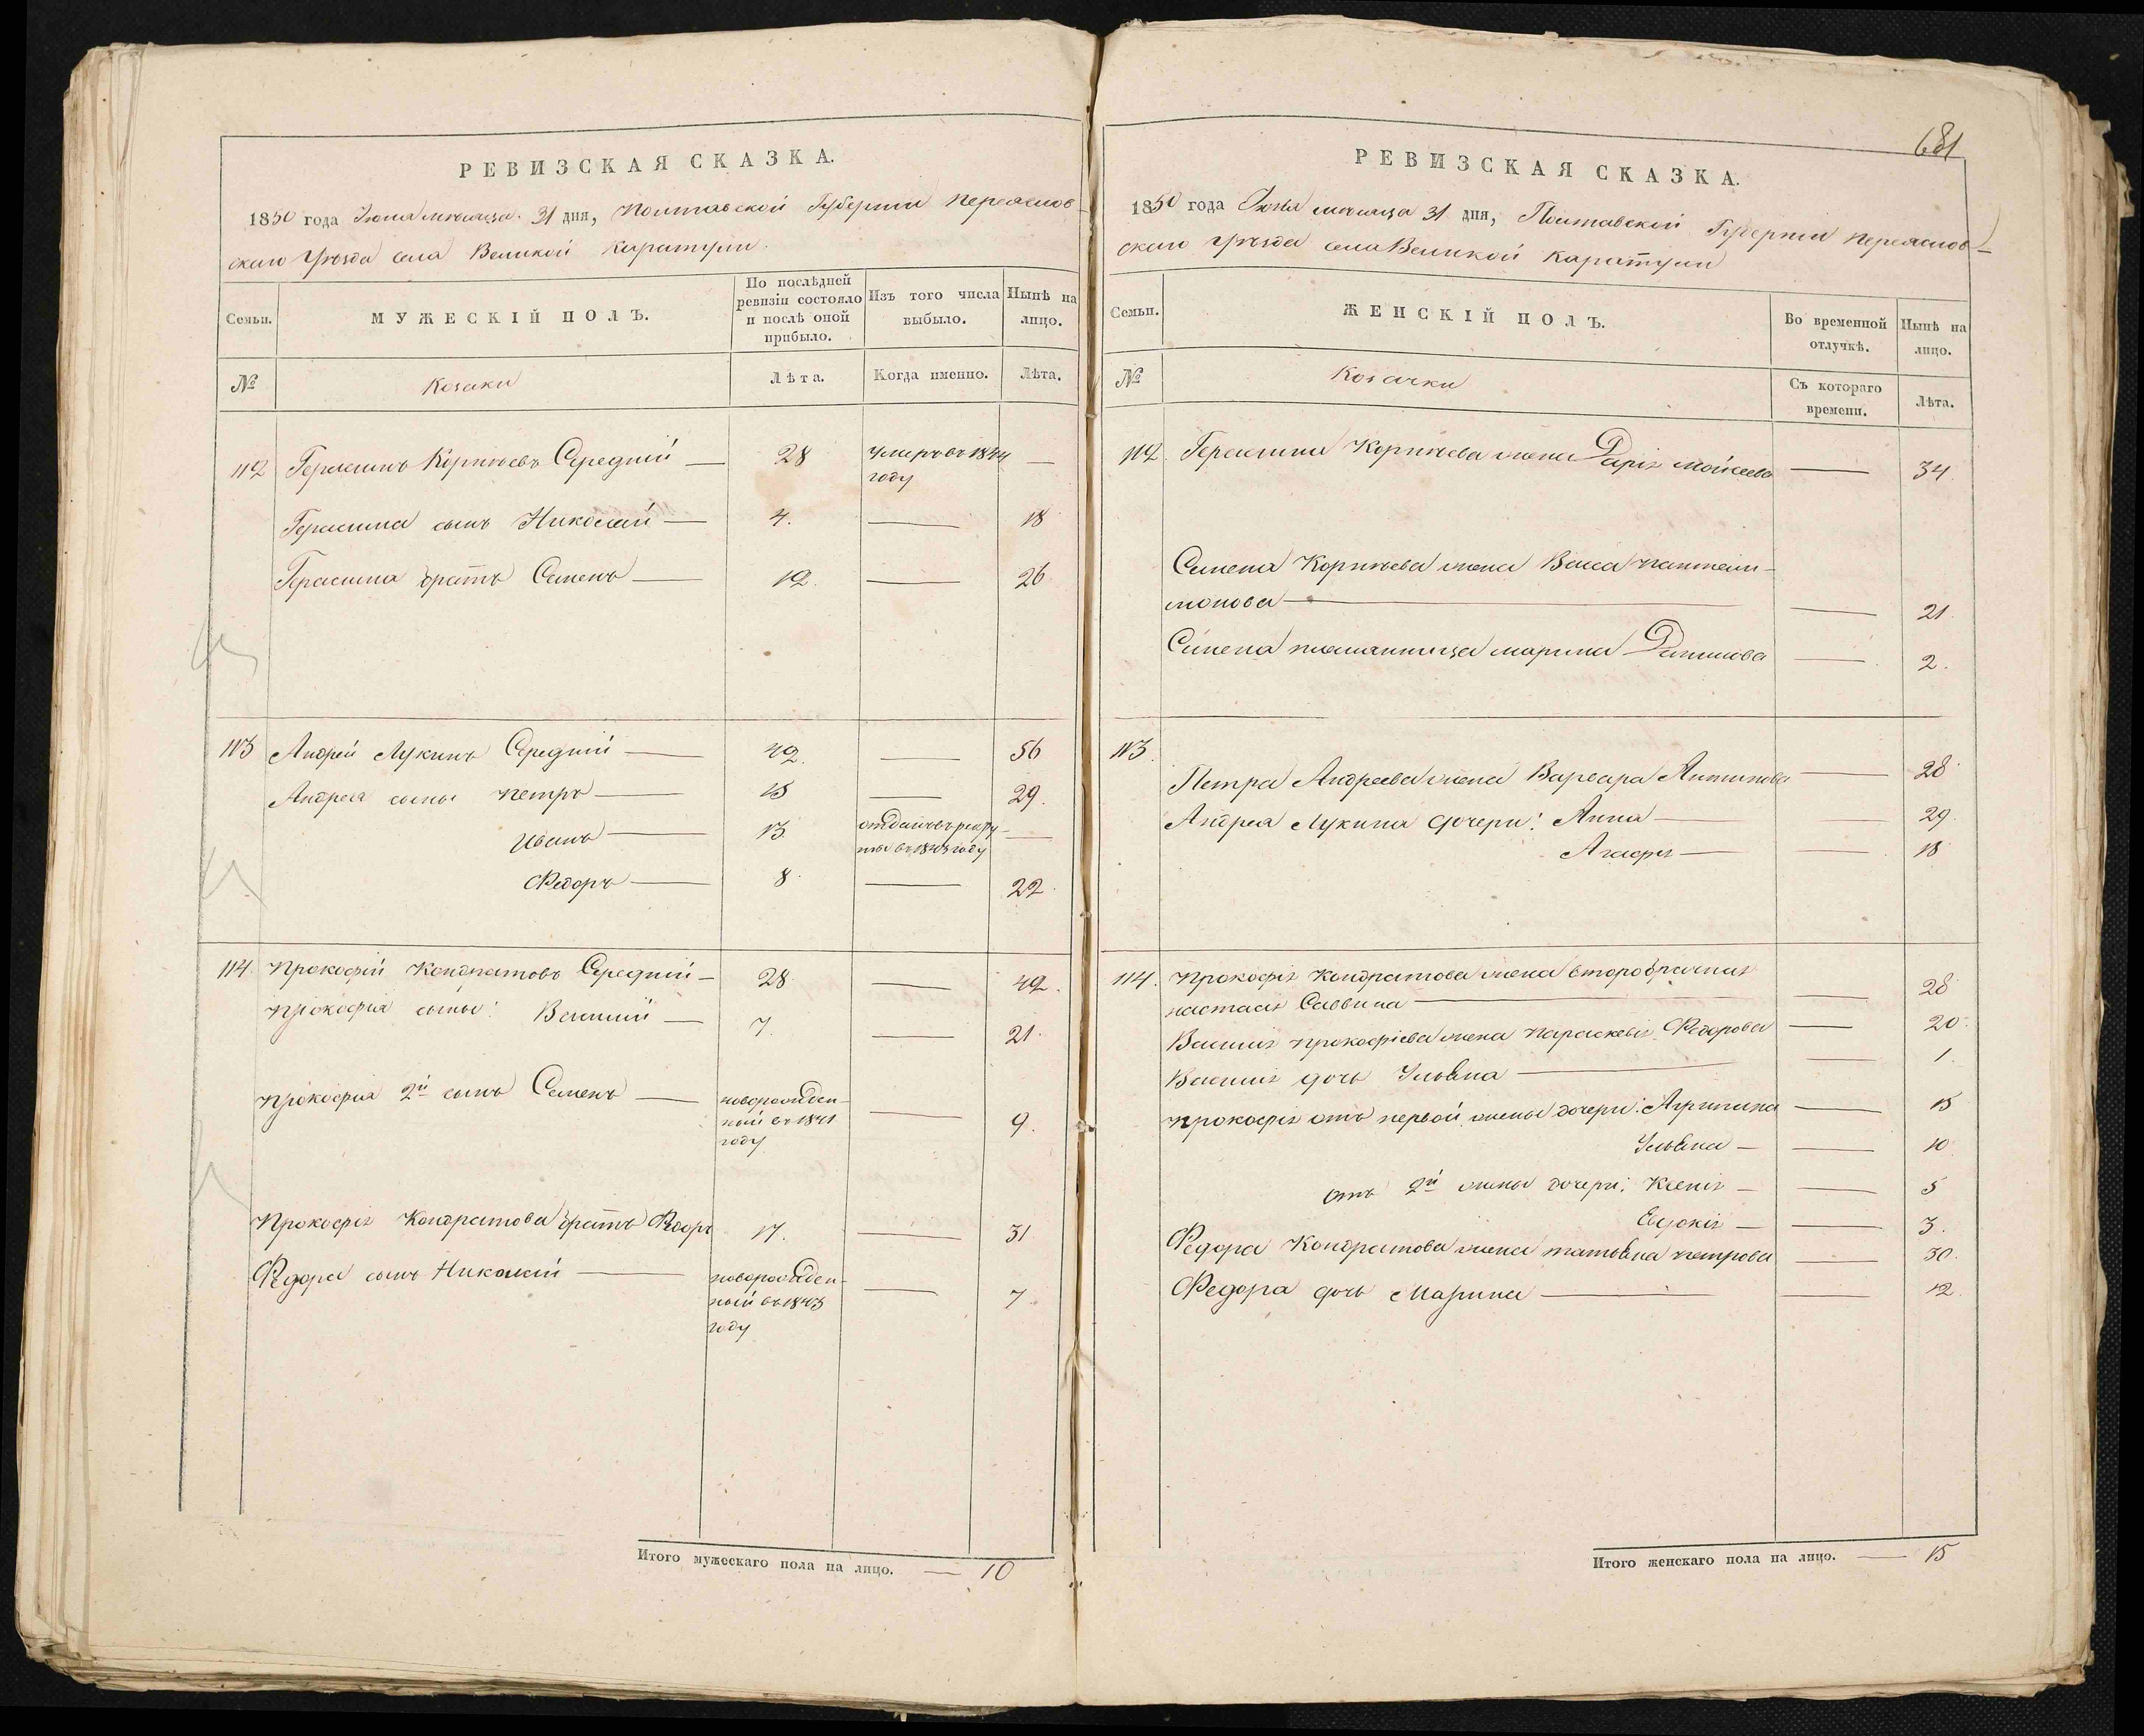 РЕВИЗСКАЯ СКАЗКА.
1850 года Іюля мѣсяца 31 дня, Полтавской Губерніи Переяслов-
скаго Уѣзда села Великой Каратули
Семьи.
МУЖЕСКІЙ ПОЛЪ.
По послѣдней
ревизіи состояло
и послѣ оной
прибыло.
Изъ того числа
выбыло.
Нынѣ на
лицо.
№
Козаки
Лѣта.
Когда именно.
Лѣта.
112 Герасимъ Корнѣевъ Середній — 28 Умеръ въ 1844 —
году
Герасима сынъ Николай — 4. — 18
Герасима братъ Семенъ — 12. — 26
113 Андрей Лукинъ Середній — 42. — 56
Андрея сыны Петръ — 15 — 29.
Иванъ — 13 отданъ въ рекру- —
ты въ 1843 году
Федоръ — 8. — 22.
114. Прокофій Кондратовъ Середній — 28 — 42.
Прокофія сыны: Василій — 7. — 21.
Прокофія 2й сынъ Семенъ — новорожден- — 9.
ный въ 1841
году
Прокофія Кондратова братъ Федоръ 17. — 31
Федора сынъ Николай — новорожден- — 7.
ный въ 1843
году
Итого мужескаго пола на лицо. — 10
681
РЕВИЗСКАЯ СКАЗКА.
1850 года Іюля мѣсяца 31 дня, Полтавской Губерніи Переяслов-
скаго Уѣзда села Великой Каратули
Семьи.
ЖЕНСКІЙ ПОЛЪ.
Во временной
отлучкѣ.
Нынѣ на
лицо.
№
Козачки
Съ котораго
времени.
Лѣта.
112 Герасима Корнѣева жена Дарія Мойсеева — 34.
Семена Корнѣева жена Васса Пантели-
монова — — 21.
Семена племянница Марина Данилова — 2.
113.
Петра Андреева жена Варвара Антипова — 28
Андрея Лукина дочери: Анна — — 29.
Агафія — — 18
114. Прокофія Кондратова жена второбрачная
Настасія Саввина — — 28
Василія Прокофіева жена Параскевія Федорова — 20.
Василія дочь Ульяна — — 1.
Прокофія отъ первой жены дочери: Агрипина — 15
Ульяна — — 10.
отъ 2й жены дочери: Ксенія — — 5
Евдокія — — 3.
Федора Кондратова жена Татьяна Петрова — 30.
Федора дочь Марина — — 12.
Итого женскаго пола на лицо. — 15